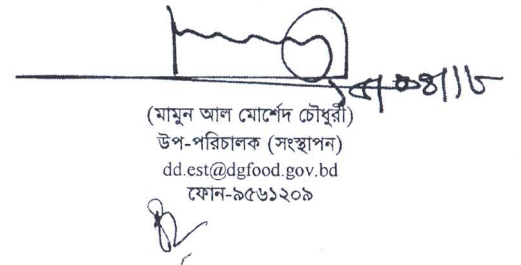 (মামুন আল মোর্শেদ চৌধুরী)
উপ-পরিচালক (সংস্থাপন)
dd.est@dgfood.gov.bd
ফোন-৯৫৬১২০৯